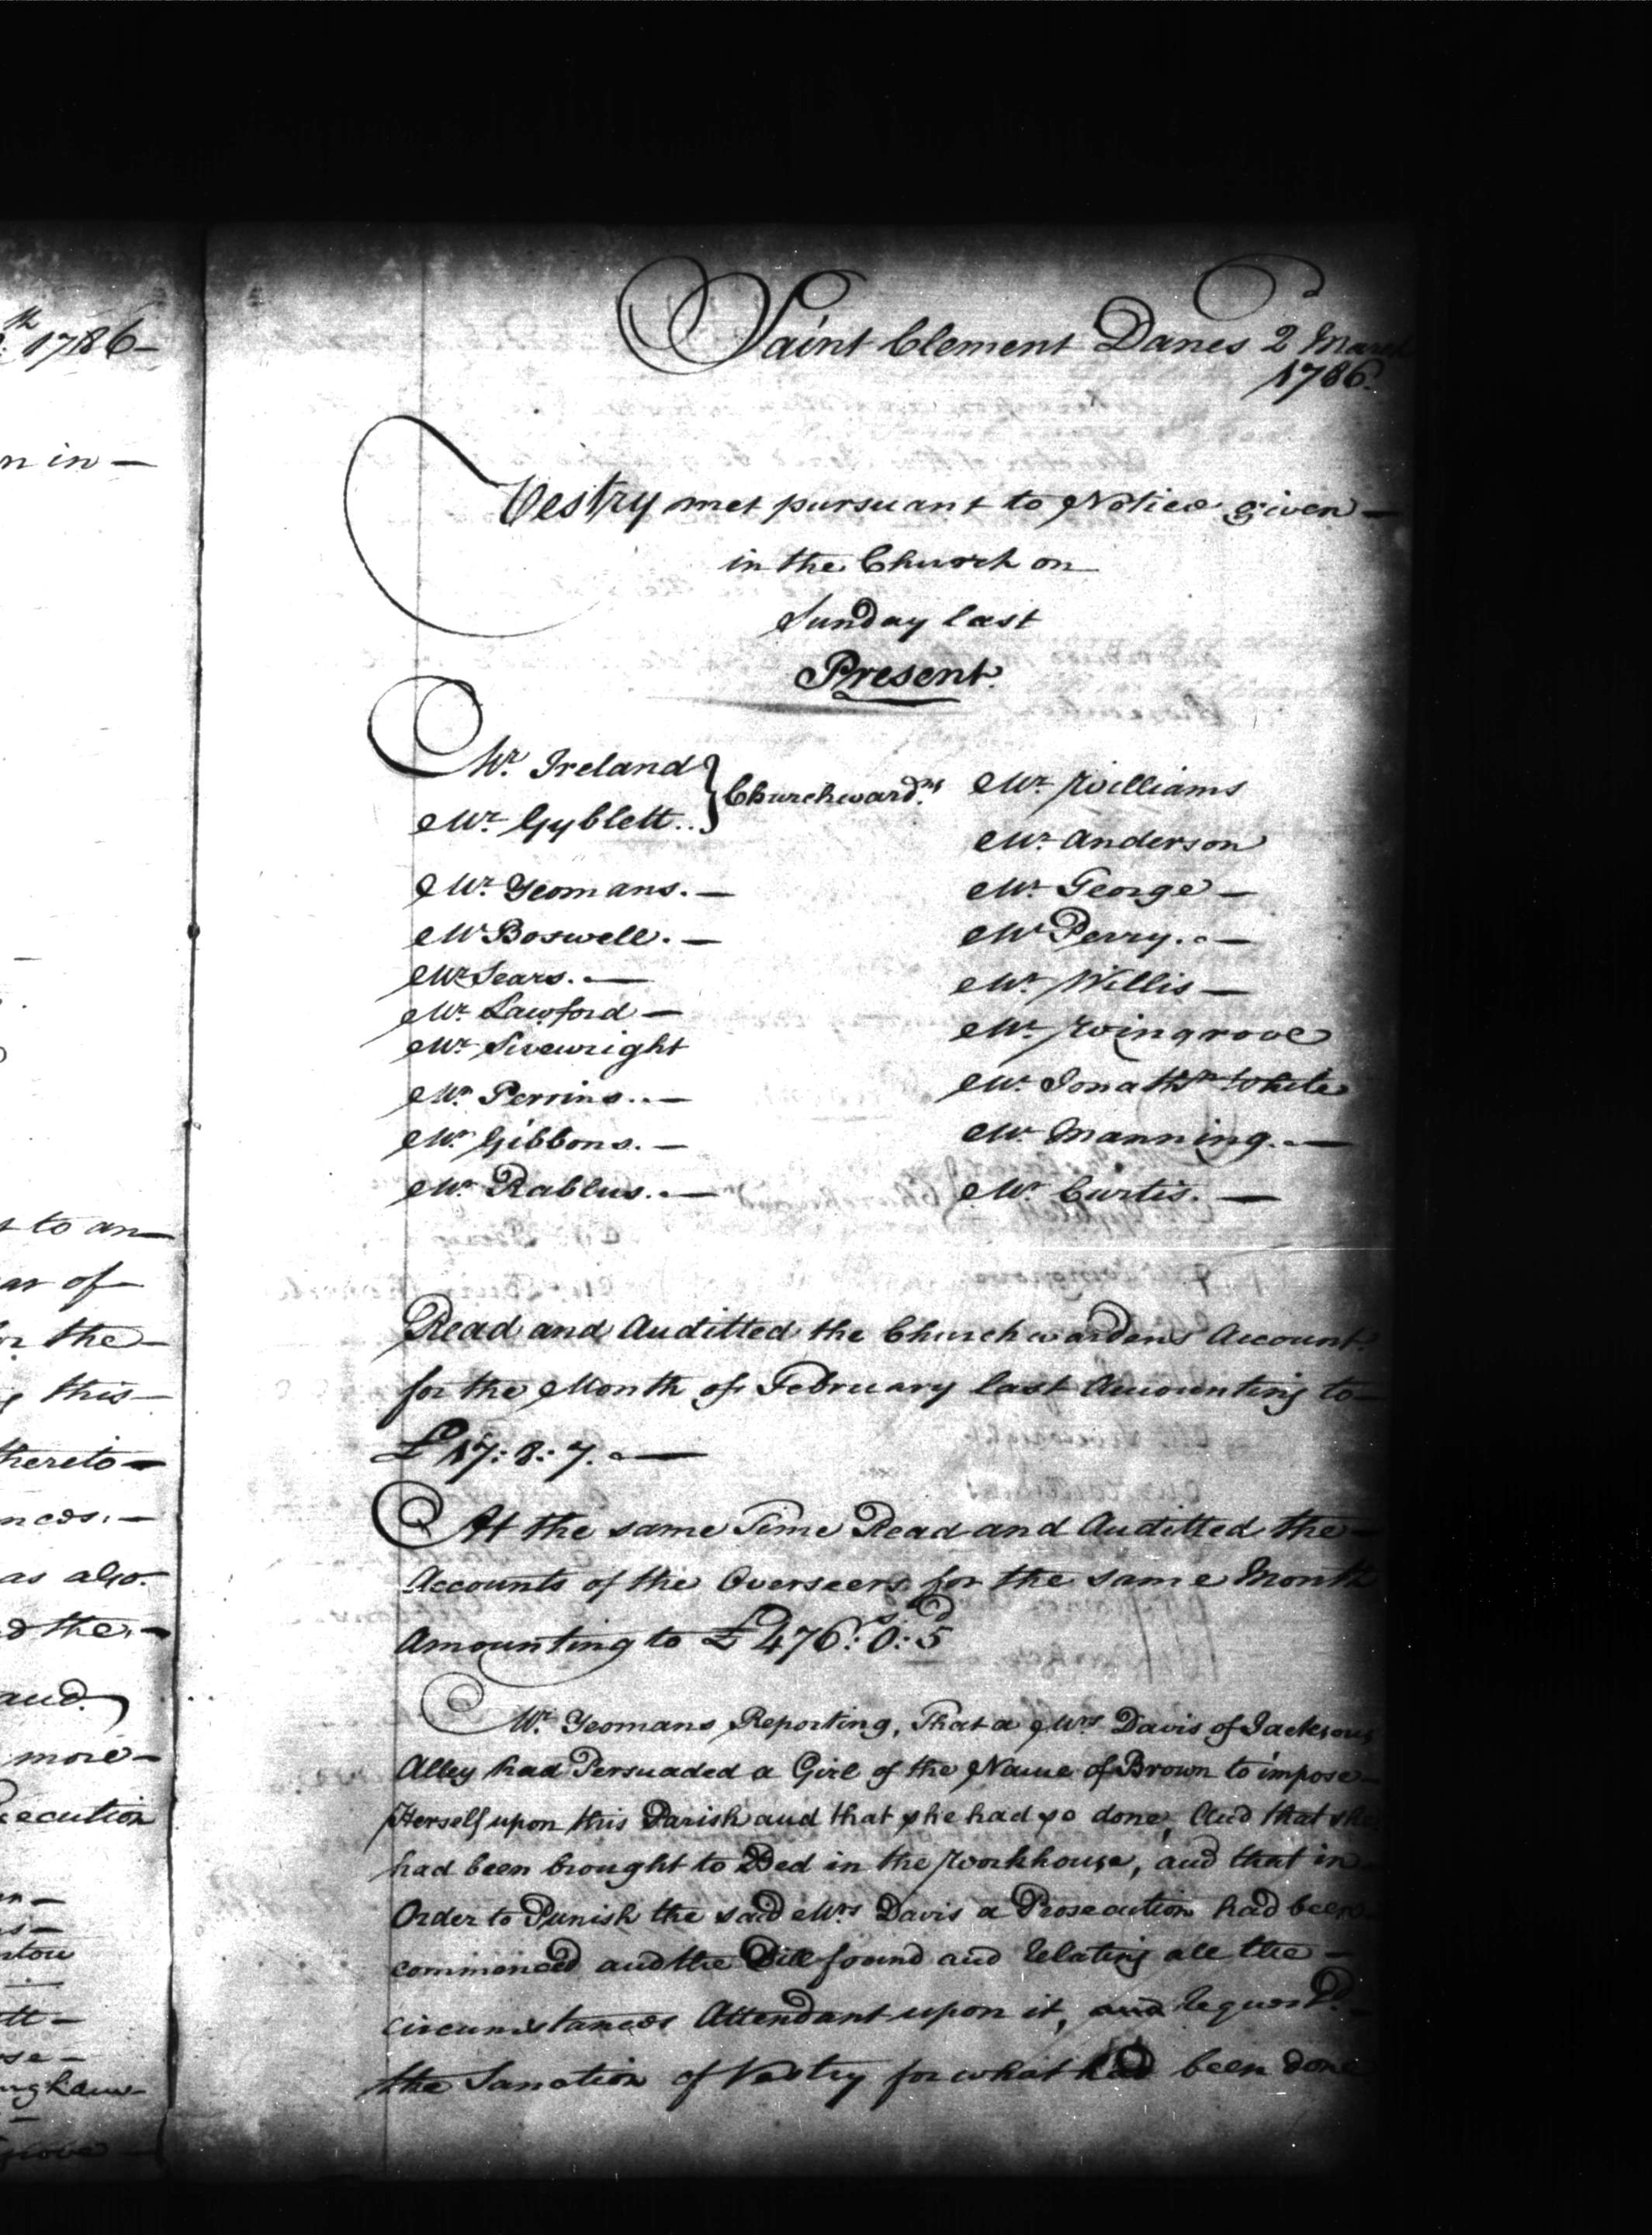 1786
n in
t to an
ar of
or the
this
hereto
nces.
as also
d the
and
more
ecution
Saint Clement Danes 2 March
1786.
Vestry met pursuant to Notice given
in the Church on
Sunday last
Present.
Mr. Ireland } Churchwardns
Mr. Gyblett..
Mr. Yeomans.
Mr Boswell.
Mr Sears.
Mr. Lawford
Mr. Sivewright
Mr. Perrins..
Mr. Gibbons.
Mr. Rablus..
Mr. Williams
Mr. Anderson
Mr. George
Mr Perry..
Mr. Willis
Mr. Wingrove
Mr. Jonathn White
Mr. Manning.
Mr. Curtis.
Read and Auditted the Churchwardens Account.
for the Month of February last Amounting to
£17: 8: 7.
At the same Time Read and Auditted the
Accounts of the Overseers for the same Month
Amounting to £476: 0s: 5d
Mr. Yeomans Reporting, That a Mrs Davis of Jacksons
Alley had Persuaded a Girl of the Name of Brown to impose
Herself upon this Parish and that she had so done, And that she
had been brought to Bed in the Workhouse, and that in
Order to Punish the said Mrs Davis a Prosecution had been
commenced and the Bill found and relating all the
circumstances Attendant upon it, and requestd.
the Sanction of Vestry for what had been done